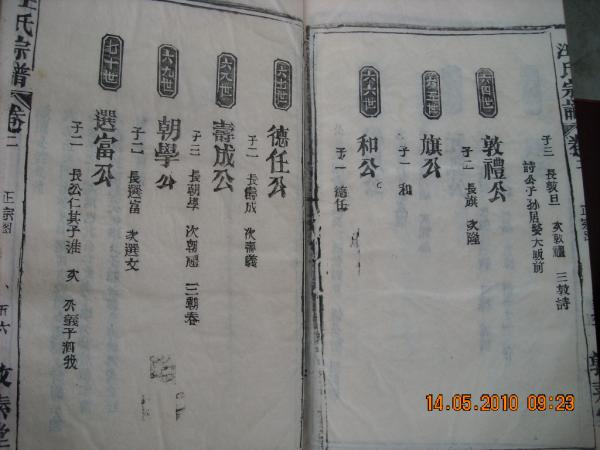 汪氏宗譜 卷二 正宗圖
子三 長敦旦 次敦禮 三敦詩
詩公子孫居婺大畈前
六四世
敦禮公
子二 長旗 次隆
六五世
旗公
子一 和
六六世
和公。
子一 德任
六七世
德任公
子二 長壽成 次壽義
六八世
壽成公
子三 長朝學 次朝禮 三朝春
六九世
朝學公
子二 長選富 次選文
七十世
選富公
子二 長公仁其子淮 次
氏宗譜 卷二 正宗圖
14.05.2010 09:23